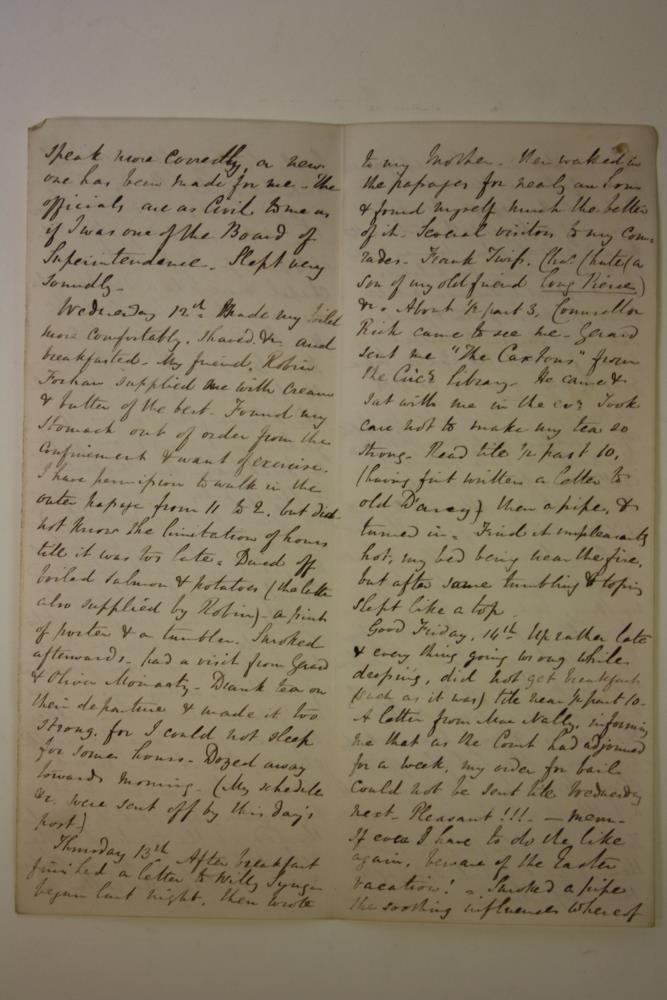 speak more correctly, a new
one has been made for me - The
officials are as Civil to me as
if I was one of the Board of
Superintendence. Slept very
soundly -
Wednesday 12th Made my toilet
more comfortably. Shaved &c and
breakfasted - My friend, Robin
supplied me with cream
& butter of the best - Found my
stomach out of order from the
confinement & want of exercise.
I have permission to walk in the
outer from 11 to 2. but did
not know the limitation of hours
till it was too late - Dined off
boiled salmon & potatoes (the latter
also supplied by Robin) - a pint
of porter & a tumbler. Smoked
afterwards - had a visit from Gerard
& Oliver Moriarty - Drank tea on
their departure & made it too
strong, for I could not sleep
for some hours - Dozed away
towards morning - (My schedule
&c. were sent off by this day's
post)
Thursday 13th After breakfast
finished a letter to Willy
began last night, then wrote
to my Mother. Then walked in
the for nearly an hour
& found myself much the better
of it. Several visitors to my com-
rades - Frank Twiss, Chas Chute (a
son of my old friend Long Pierce)
&c. About ½ past 3, Counsellor
Rick came to see me - Gerard
sent me "The Caxtons" from
the Library - He came &
sat with me in the Took
care not to make my tea so
strong - Read till ½ past 10,
(having first written a letter to
old Darcy) then a pipe, &
turned in - Find it unpleasantly
hot, my bed being near the fire,
but after some tumbling & toping
slept like a top.
Good Friday, 14th Up rather late
& every thing going wrong while
dressing, did not get breakfast
(such as it was) till near ½ past 10 -
A letter from Mac Nally, informing
me that as the Court had adjourned
for a week, my order for bail
could not be sent till Wednesday
next - Pleasant!!! - mem -
If ever I have to do the like
again, beware of the Easter
vacation! - Smoked a pipe
the soothing influences whereof